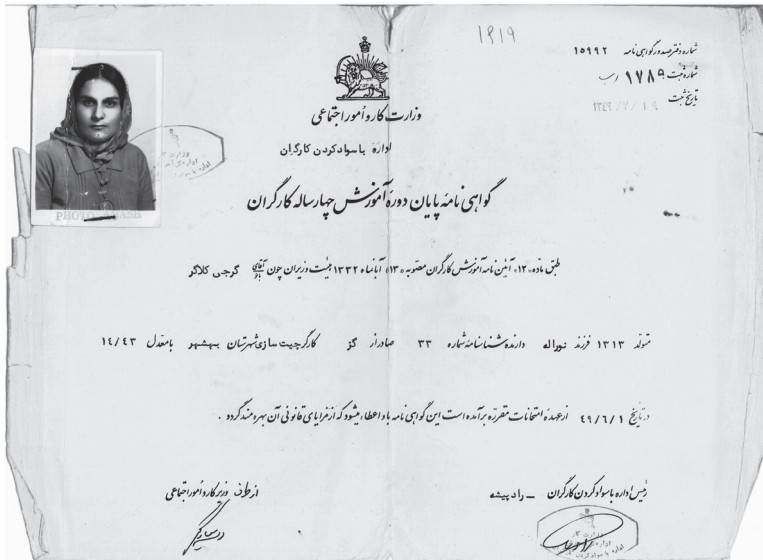 ۱۸۱۹
شماره دفتر صدور گواهی نامه ۱۵۹۹۲
شماره ثبت ۱۷۸۹
تاریخ ثبت
وزارت کار و امور اجتماعی
اداره باسواد کردن کارگران
گواهی نامه پایان دوره آموزش چهار ساله کارگران
PHOTO
طبق ماده «۱۲» آئین نامه آموزش کارگران مصوبه «۱۳» آبانماه ۱۳۳۲ هیئت وزیران چون آقای بانو گرجی کلاگر
متولد ۱۳۱۳ فرزند نوراله دارنده شناسنامه شماره ۳۳ صادر از گز کارگر چیت سازی شهرستان بهشهر با معدل ۱۴/۴۳
در تاریخ ۴۹/۶/۱ از عهده امتحانات مقرره برآمده است این گواهی نامه باو اعطاء میشود که از مزایای قانونی آن بهره مند گردد .
رئیس اداره باسواد کردن کارگران – رادپیشه
از طرف وزیر کار و امور اجتماعی